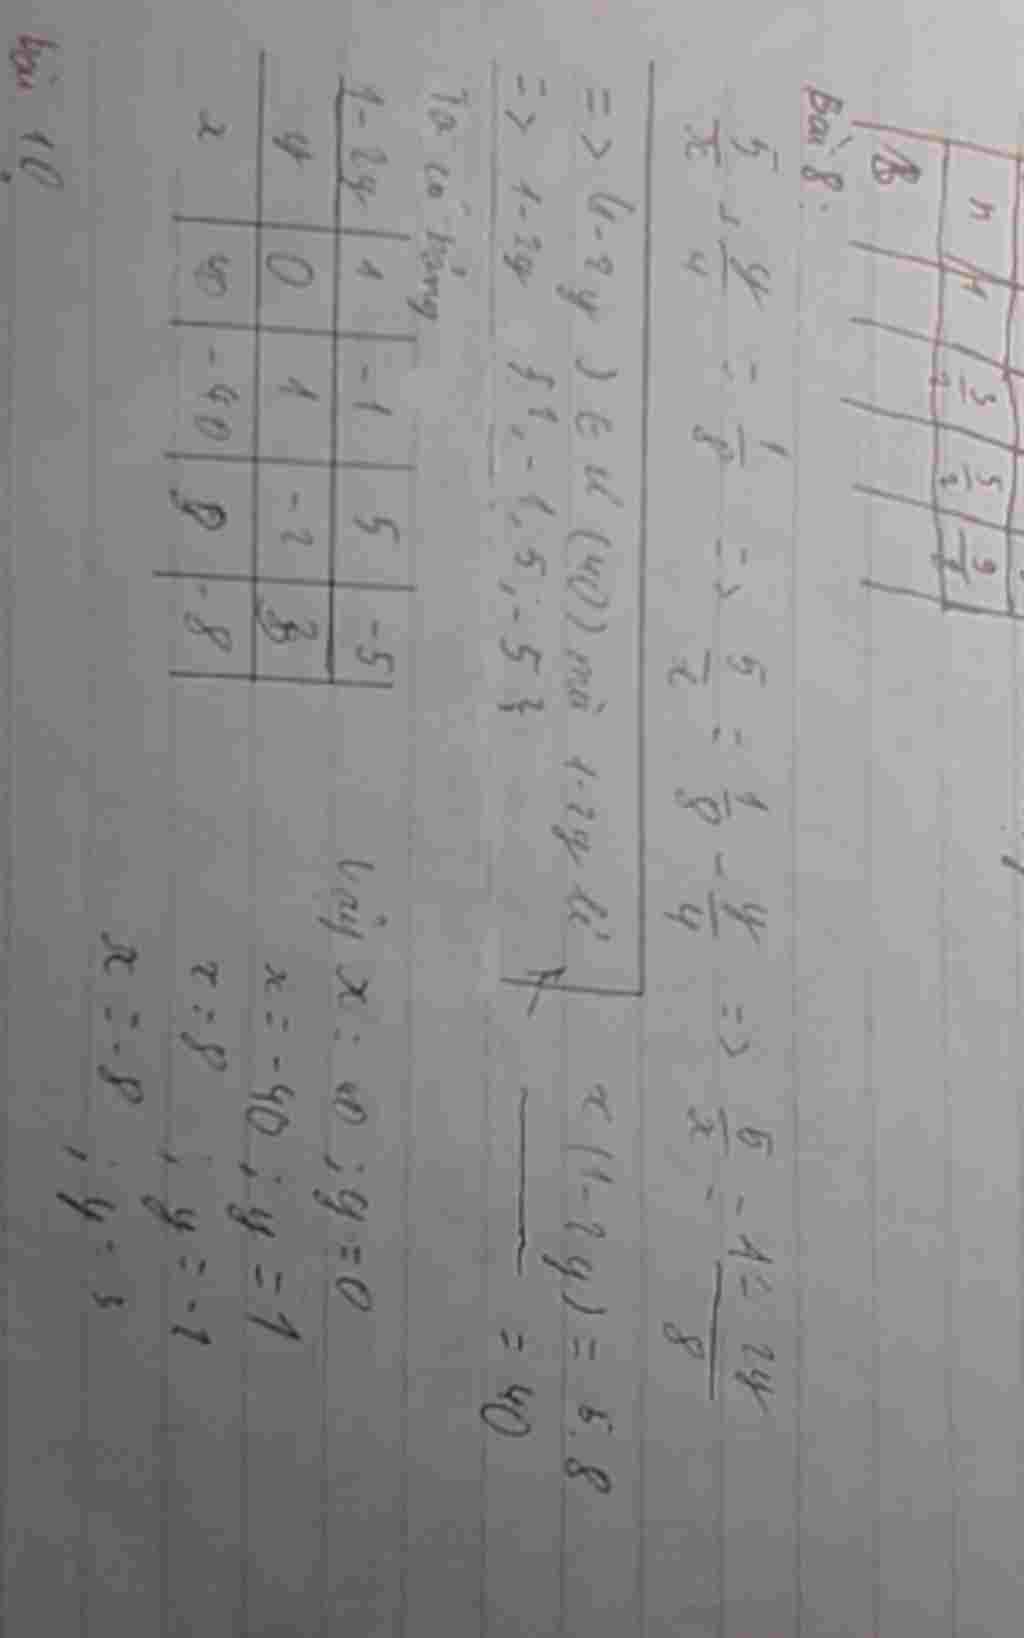 n 4 3/2 5/2 9/7
B
Bài 8:
5/x + y/4 = 1/8 => 5/x = 1/8 - y/4 => 5/x = 1 - 2y/8
x(1-2y) = 5.8
= 40
=> (1-2y) ∈ Ư(40) mà 1-2y lẻ
=> 1-2y {1, -1, 5, -5}
Ta có bảng
1-2y 1 -1 5 -5
y 0 1 -2 3
x 40 -40 8 -8
Vậy x = 40 ; y = 0
x = -40 ; y = 1
x = 8 ; y = -2
x = -8 ; y = 3
bài 10: